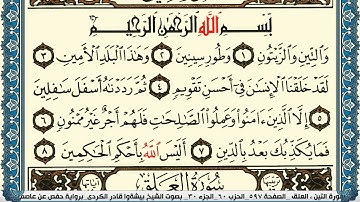 بِسْمِ اللَّهِ الرَّحْمَٰنِ الرَّحِيمِ
وَالتِّينِ وَالزَّيْتُونِ ١ وَطُورِ سِينِينَ ٢ وَهَٰذَا الْبَلَدِ الْأَمِينِ ٣
لَقَدْ خَلَقْنَا الْإِنسَٰنَ فِي أَحْسَنِ تَقْوِيمٍ ٤ ثُمَّ رَدَدْنَٰهُ أَسْفَلَ سَٰفِلِينَ
٥ إِلَّا الَّذِينَ ءَامَنُوا وَعَمِلُوا الصَّٰلِحَٰتِ فَلَهُمْ أَجْرٌ غَيْرُ مَمْنُونٍ ٦
فَمَا يُكَذِّبُكَ بَعْدُ بِالدِّينِ ٧ أَلَيْسَ اللَّهُ بِأَحْكَمِ الْحَٰكِمِينَ ٨
سُورَةُ الْعَلَقِ
ورة التين ، العلق_ الصفحة ٥٩٧ الحزب ٦٠ الجزء ٣٠_ بصوت الشيخ بيشةوا قادر الكردي_ برواية حفص عن عاصم